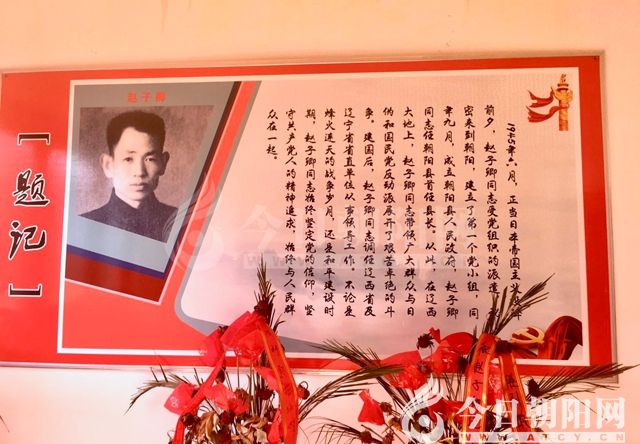 赵子卿
[题记]
1945年六月，正当日本帝国主义投降
前夕，赵子卿同志受党组织的派遣，秘
密来到朝阳，建立了第一个党小组，同
年九月，成立朝阳县人民政府，赵子卿
同志任朝阳县首任县长，从此，在辽西
大地上，赵子卿同志带领广大群众与日
伪和国民党反动派展开了艰苦卓绝的斗
争。建国后，赵子卿同志调任辽西省及
辽宁省省直单位从事领导工作。不论是
烽火连天的战争岁月，还是和平建设时
期，赵子卿同志始终坚定党的信仰，坚
守共产党人的精神追求，始终与人民群
众在一起。
今日朝阳网
今日朝阳网
WWW.ATCY.CN